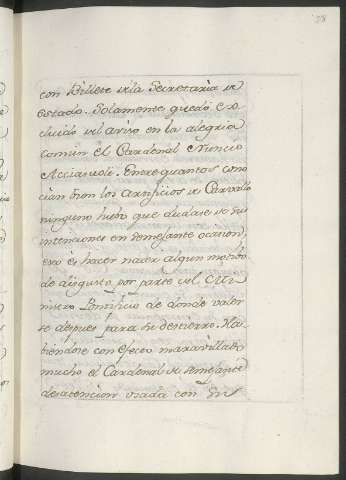 28
con Billete de la Secretaria de
Estado. Solamente quedó ex
cluido del aviso en la alegria
comun el Cardenal Nuncio
Acciavoli. Entre quantos cono
cian bien los Artificios de Carvallo
ninguno hubo que dudase de sus
intenciones en semejante ocasion,
esto es hacer nacer algun motivo
de disgusto por parte del Mi
nistro Pontificio de donde valer
se despues para su destierro. Ha
biendose con efecto maravillado
mucho el Cardenal de semejante
desatencion usada con Su